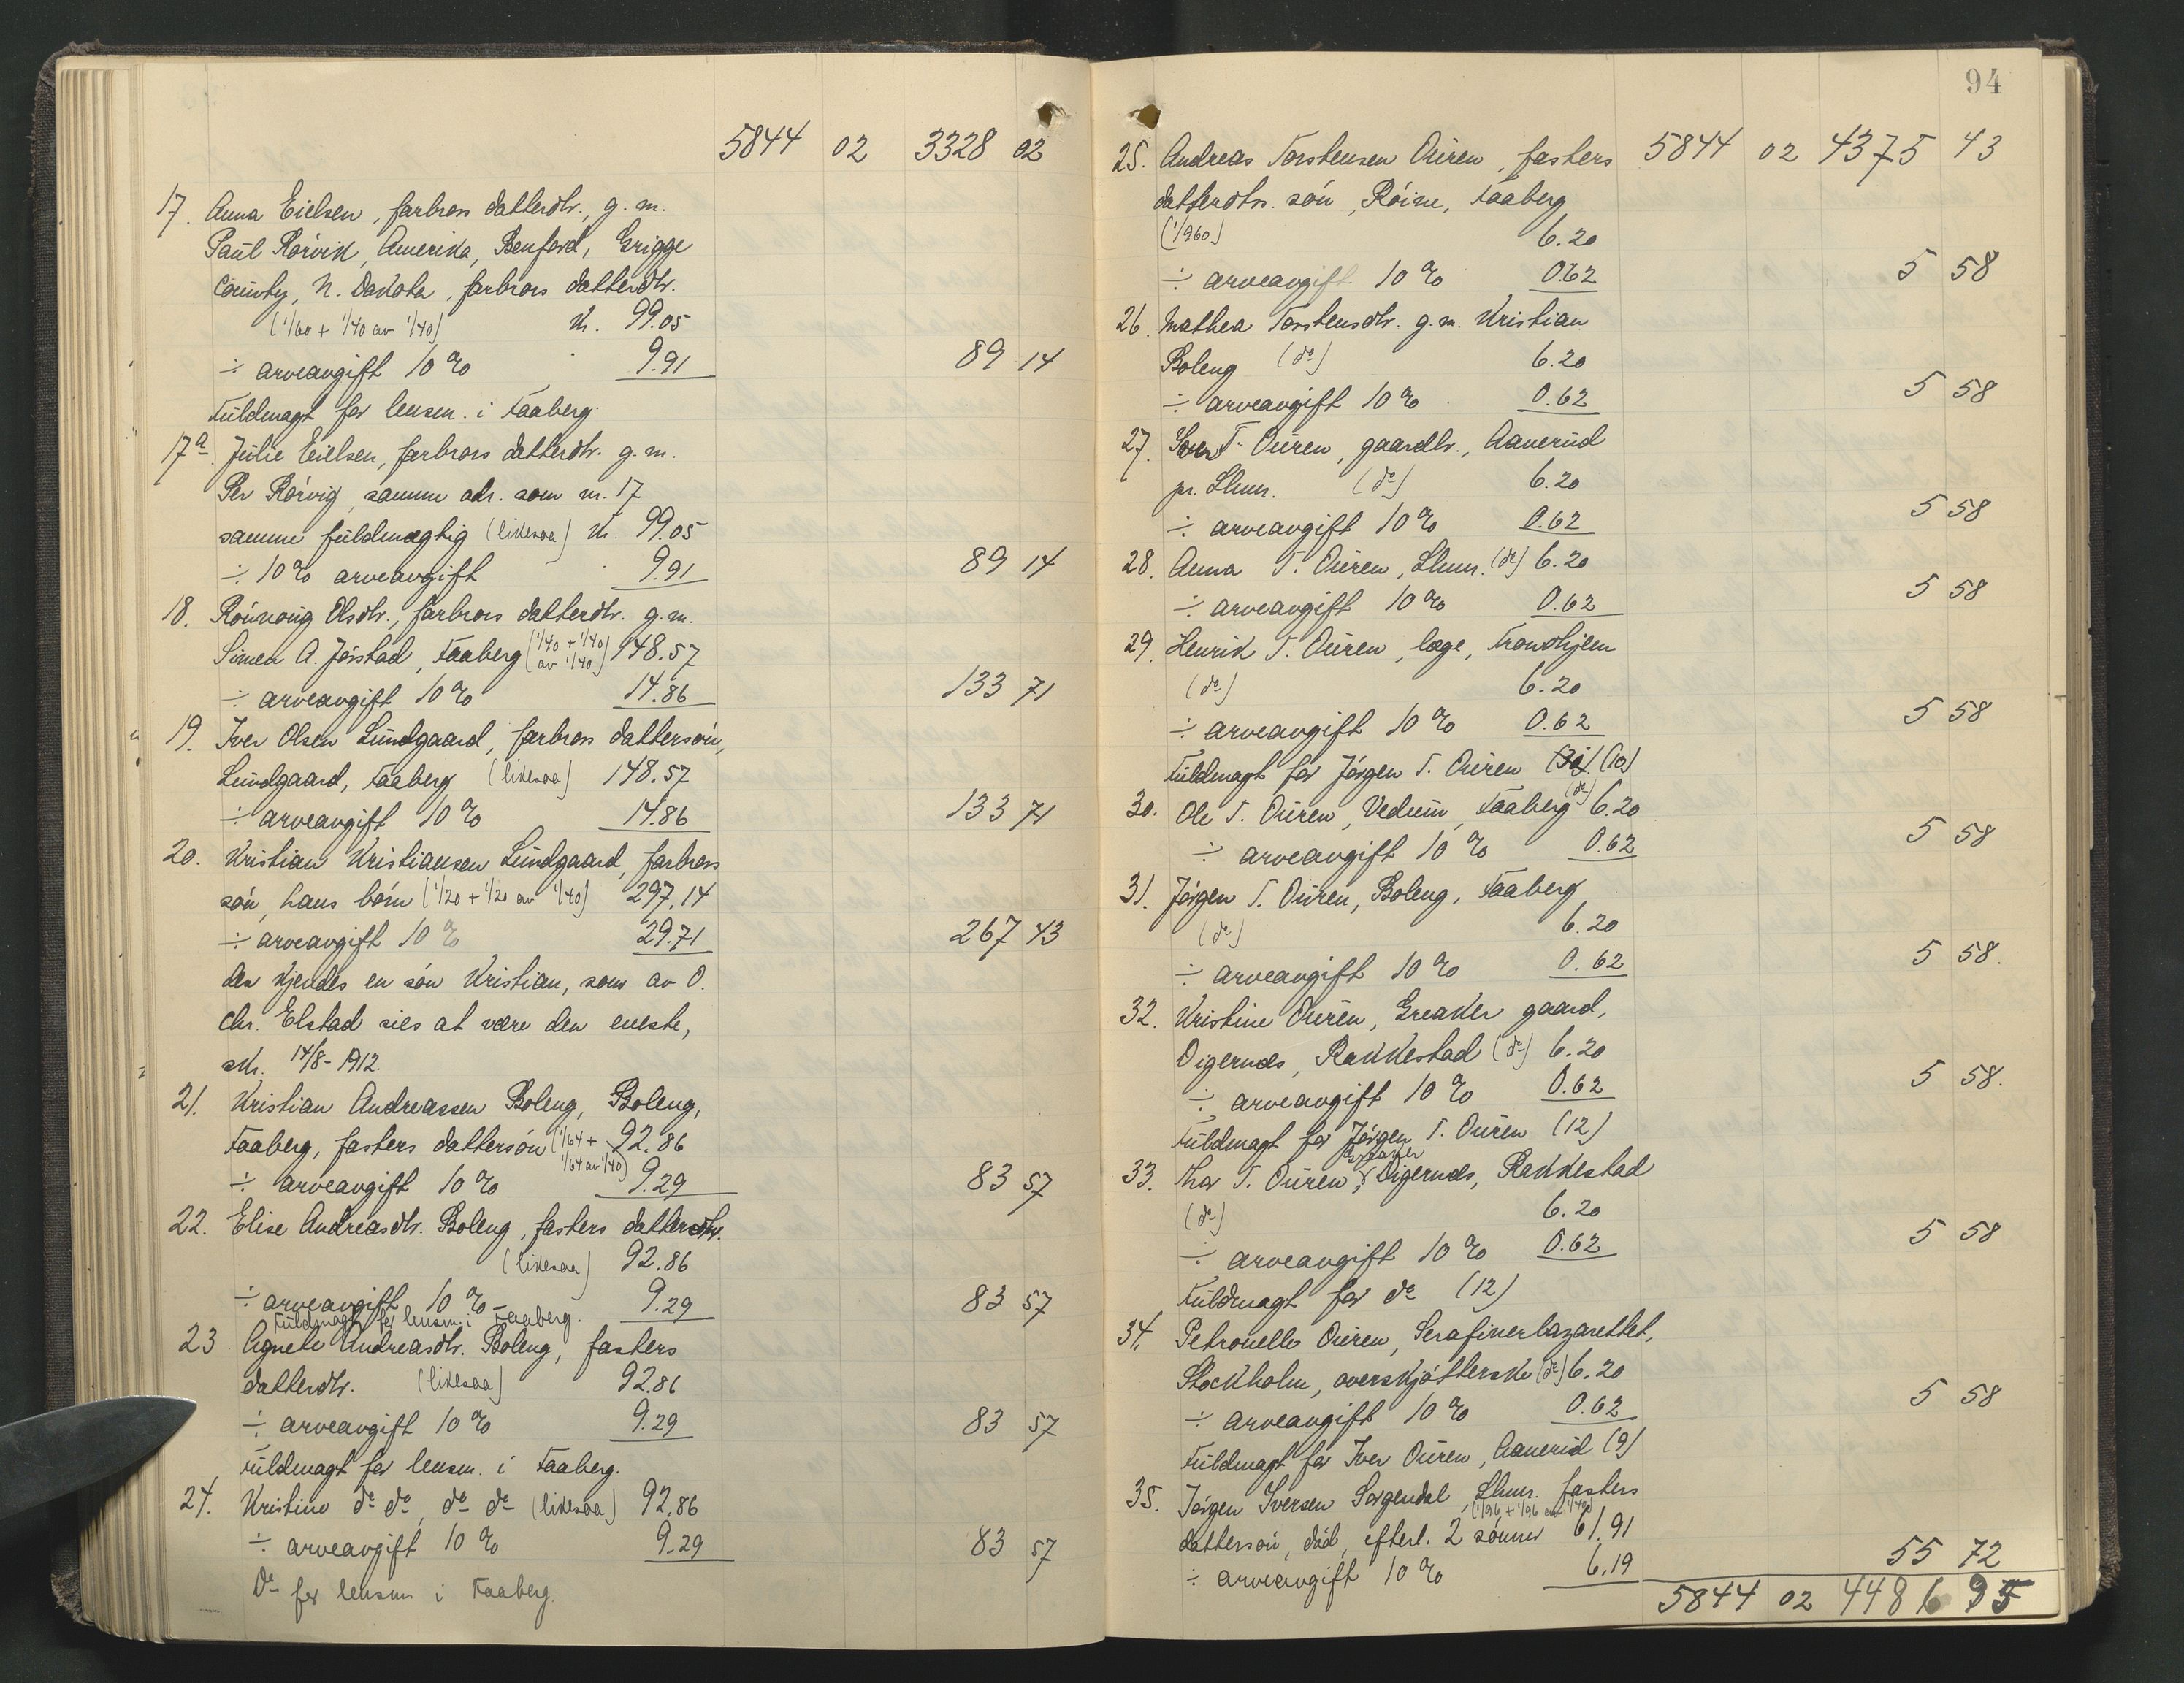 5844 02 3328 02
17. Anna Eielsen, farbrors datterdtr., g. m.
Paul Rörvik, Amerika, Benford, Grigge
County, N. Dakota, farbrors datterdtr.
(1/60 + 1/40 av 1/40) kr. 99.05
÷ arveavgift 10 % 9.91 89 14
Fuldmagt for lensm. i Faaberg.
17a. Julie Eielsen, farbrors datterdtr. g. m.
Per Rörvig, samme adr. som nr. 17
samme fuldmægtig (likesaa) kr. 99.05
÷ 10 % arveavgift 9.91 89 14
18. Rönnaug Olsdtr., farbrors datterdtr. g. m.
Simen A. Jörstad, Faaberg (1/40 + 1/40 av 1/40) 148.57
÷ arveavgift 10 % 14.86 133 71
19. Iver Olsen Lundgaard, farbrors dattersön,
Lundgaard, Faaberg (likesaa) 148.57
÷ arveavgift 10 % 14.86 133 71
20. Kristian Kristiansen Lundgaard, farbrors
sön, hans börn (1/20 + 1/20 av 1/40) 297.14
÷ arveavgift 10 % 29.71 267 43
der kjendes en sön Kristian, som av O.
Chr. Elstad sies at være den eneste,
skr. 14/8-1912.
21. Kristian Andreassen Boleng, Boleng,
Faaberg, fasters dattersön (1/64 + 1/64 av 1/40) 92.86
÷ arveavgift 10 % 9.29 83 57
22. Elise Andreasdtr. Boleng, fasters datterdtr.
(likesaa) 92.86
÷ arveavgift 10 % 9.29 83 57
Fuldmagt for lensm. i Faaberg.
23 Agnete Andreasdtr. Boleng, fasters
datterdtr. (likesaa) 92.86
÷ arveavgift 10 % 9.29 83 57
Fuldmagt for lensm. i Faaberg.
24. Kristine do do, do do (likesaa) 92.86
÷ arveavgift 10 % 9.29 83 57
Do for lensm i Faaberg.
94
25. Andreas Torstensen Ouren, fasters 5844 02 4375 43
datterdtrs. sön, Röine, Faaberg
(1/960.) 6.20
÷ arveavgift 10 % 0.62 5 58
26. Mathea Torstensdtr. g. m. Kristian
Boleng (do) 6.20
÷ arveavgift 10 % 0.62 5 58
27. Iver T. Ouren, gaardbr., Aanerud
pr. Lhmr. (do) 6.20
÷ arveavgift 10 % 0.62 5 58
28. Anna T. Ouren, Lhmr. (do) 6.20
÷ arveavgift 10 % 0.62 5 58
29. Henrik T. Ouren, læge, Trondhjem
(do) 6.20
÷ arveavgift 10 % 0.62 5 58
Fuldmagt for Jörgen T. Ouren (10)
30. Ole T. Ouren, Vedum, Faaberg (do) 6.20
÷ arveavgift 10 % 0.62 5 58
31. Jörgen T. Ouren, Boleng, Faaberg
(do) 6.20
÷ arveavgift 10 % 0.62 5 58.
32. Kristine Ouren, Greaker gaard,
Digernes, Rakkestad (do) 6.20
÷ arveavgift 10 % 0.62 5 58.
Fuldmagt for Jörgen T. Ouren (12)
33. Thor T. Ouren, Greaker Digernes, Rakkestad
(do) 6.20
÷ arveavgift 10 % 0.62 5 58
Fuldmagt for do (12)
34. Petronelle Ouren, Serafinerlazarettet,
Stockholm, overskjötterske (do) 6.20
÷ arveavgift 10 % 0.62 5 58
Fuldmagt for Iver Ouren, Aanerud (9)
35. Jörgen Iversen Sorgendal, Lhmr. fasters
(1/96 + 1/96 av 1/40)
dattersön, död, efterl. 2 sönner 61.91
÷ arveavgift 10 % 6.19 55 72
5844 02 4486 95